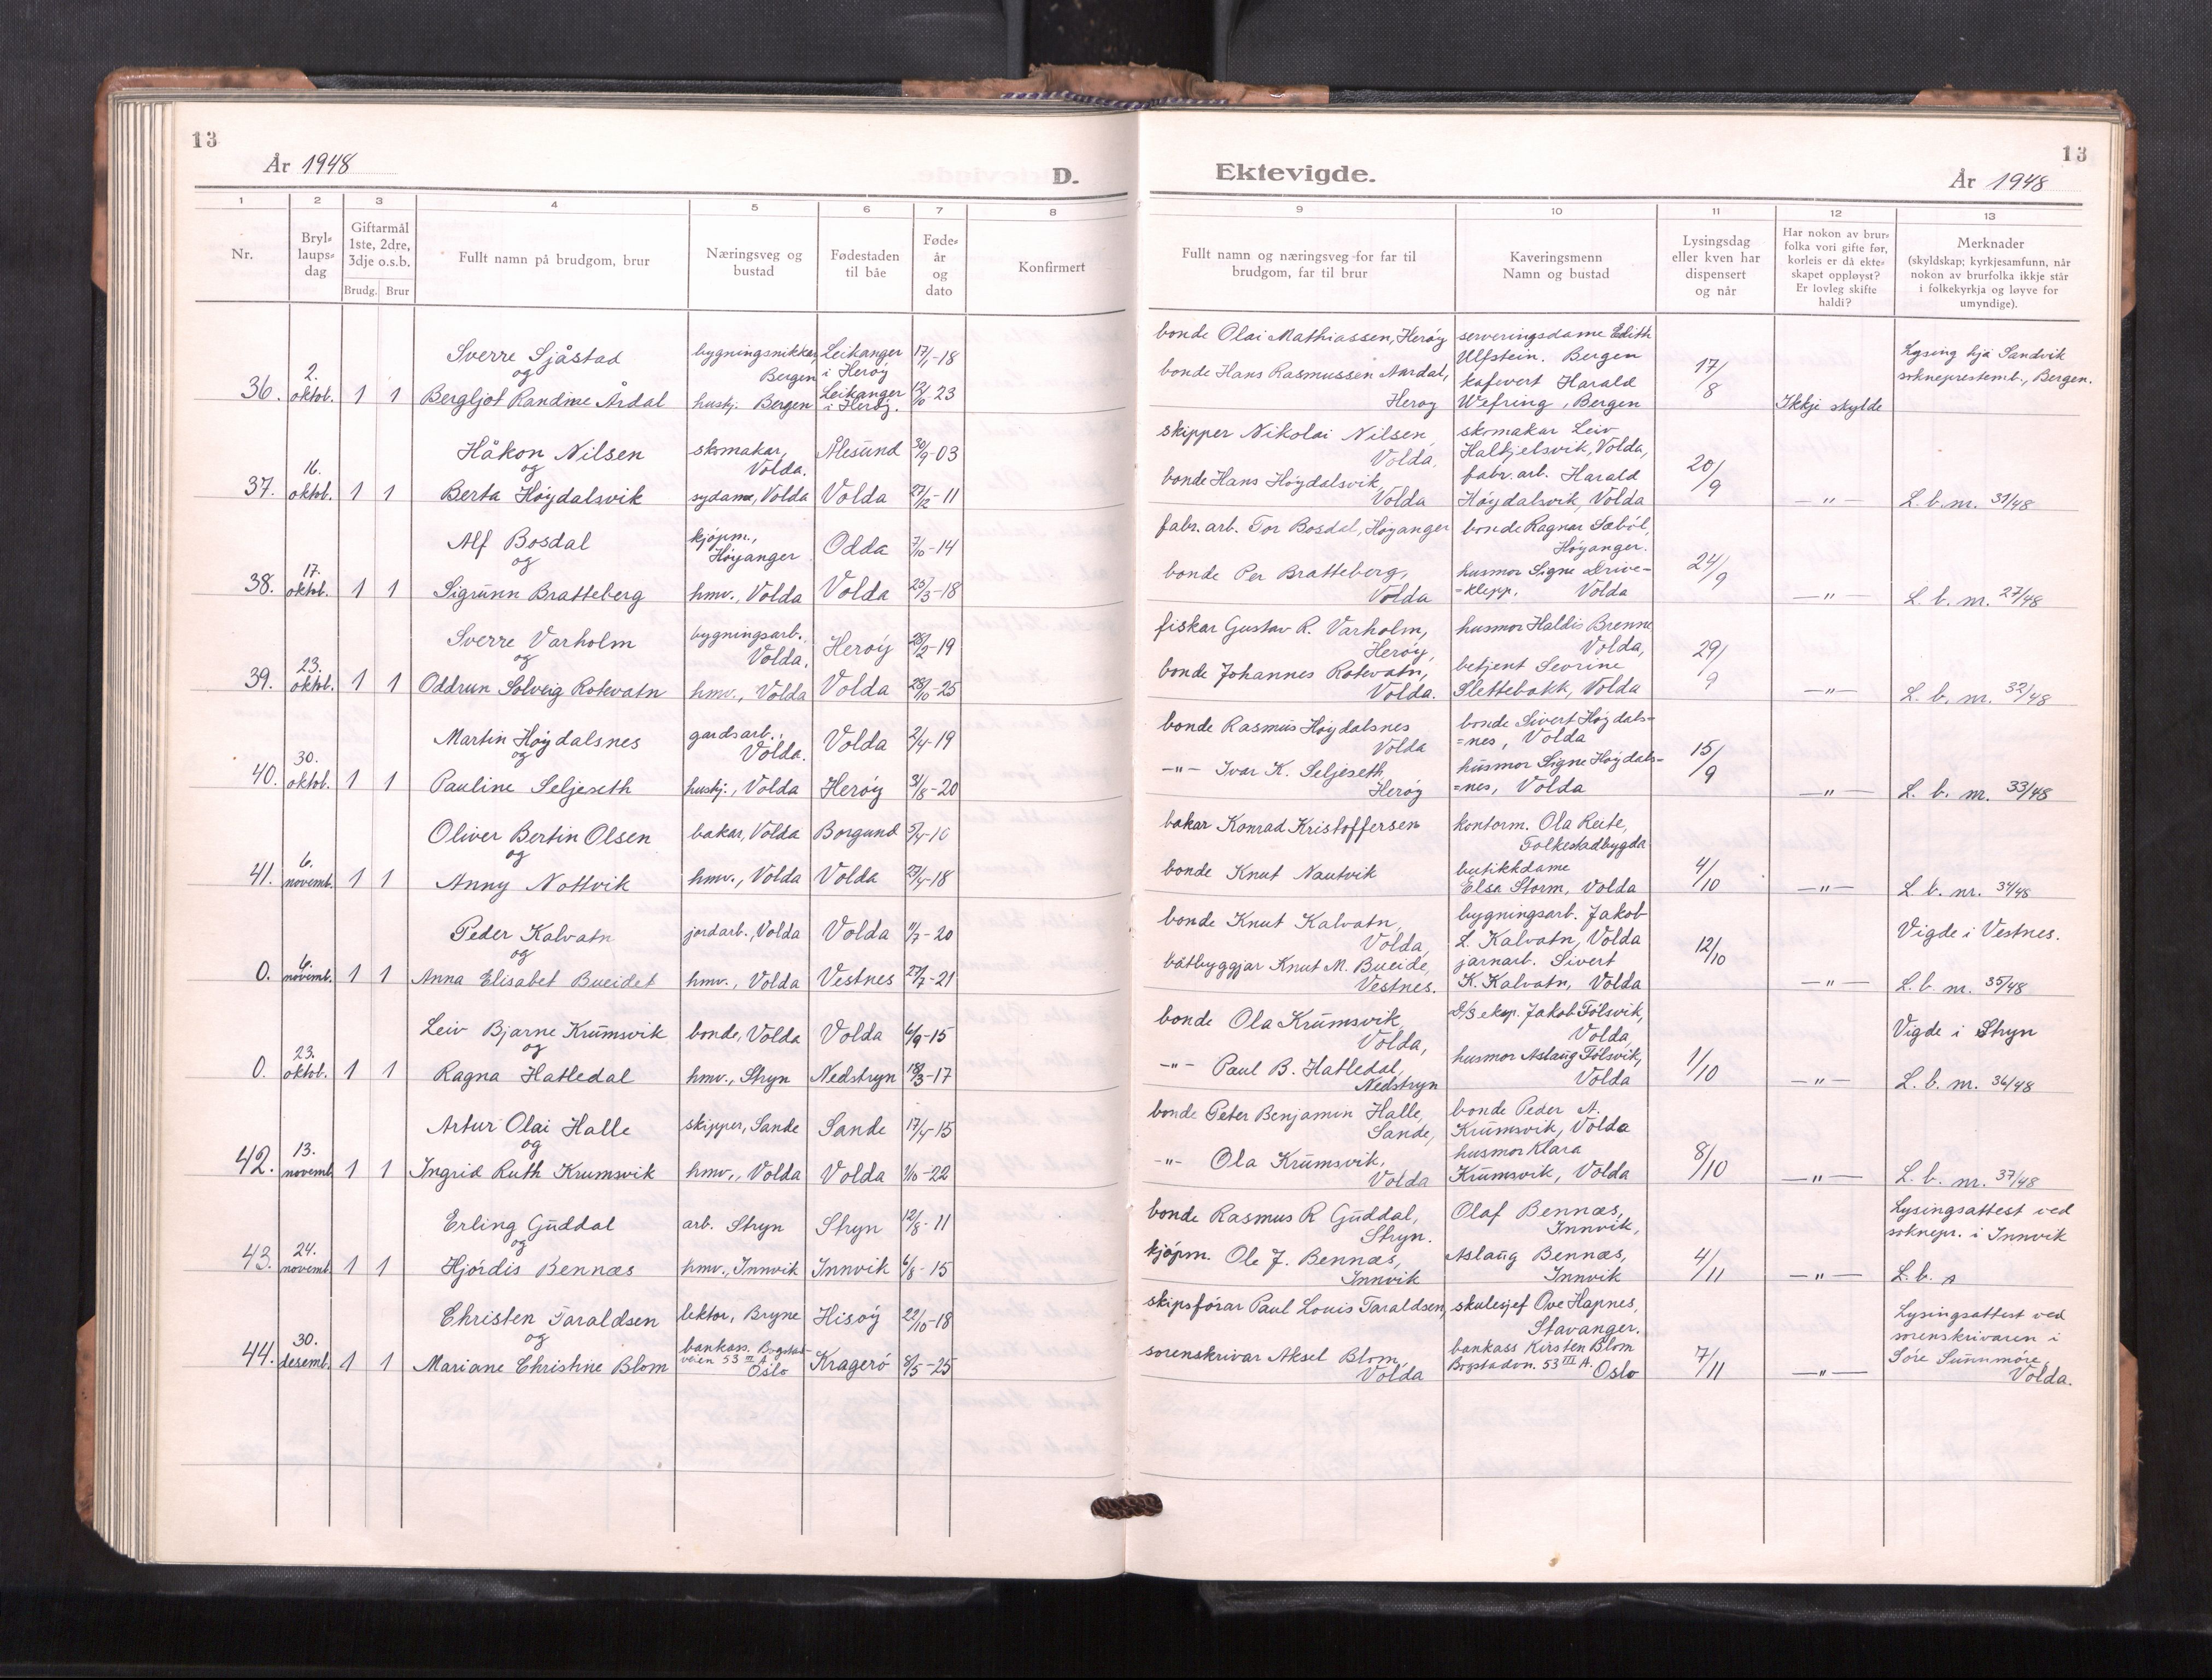 13
År 1948
D.
1 2 3 4 5 6 7 8
Nr.
Bryl-
laups-
dag
Giftarmål
1ste, 2dre,
3dje o.s.b.
Brudg. Brur
Fullt namn på brudgom, brur
Næringsveg og
bustad
Fødestaden
til båe
Føde-
år
og
dato
Konfirmert
Sverre Sjåstad bygningsnikkar, Leikanger 17/1-18
og Bergen i Herøy
36. 2. oktob. 1 1 Bergljot Randine Årdal hushj. Bergen Leikanger i Herøy. 12/10-23
Håkon Nilsen skomakar, Ålesund 30/9-03
og Volda.
37. 16. oktob. 1 1 Berta Høydalsvik sydame, Volda Volda 27/12-11
Alf Bosdal kjøpm., Odda 7/10-14
og Høyanger
38. 17. oktob. 1 1 Sigrunn Bratteberg hmv., Volda Volda 25/3-18
Sverre Varholm bygningsarb. Herøy 28/2-19
og Volda.
39. 23. oktob. 1 1 Oddrun Solveig Rotevatn hmv., Volda Volda 28/10-25
Martin Høydalsnes gardsarb., Volda 2/4-19
og Volda.
40. 30. oktob. 1 1 Pauline Seljeseth hushj., Volda Herøy 31/8-20
Oliver Bertin Olsen bakar, Volda Borgund 5/4-10
og
41. 6. novemb. 1 1 Anny Nottvik hmv., Volda Volda 23/4-18
Peder Kalvatn jordarb., Volda Volda 11/7-20
og
0. 6. novemb. 1 1 Anna Elisabet Bueidet hmv., Volda Vestnes 27/7-21
Leiv Bjarne Krumsvik bonde, Volda Volda 6/9-15
og
0. 23. oktob. 1 1 Ragna Hatledal hmv., Stryn Nedstryn 18/3-17
Artur Olai Halle skipper, Sande Sande 17/4-15
og
42. 13. novemb. 1 1 Ingrid Ruth Krumsvik hmv., Volda Volda 1/10-22
Erling Guddal arb. Stryn Stryn 12/8-11
og
43. 24. novemb. 1 1 Hjördis Bennæs hmv., Innvik Innvik 6/8-15
Christen Taraldsen lektor, Bryne Hisøy 22/10-18
og bankass. Bogstad-
44. 30. desemb. 1 1 Mariane Christine Blom veien 53 III A Oslo Kragerø 8/5-25
13
Ektevigde.
År 1948
9 10 11 12 13
Fullt namn og næringsveg for far til
brudgom, far til brur
Kaveringsmenn
Namn og bustad
Lysingsdag
eller kven har
dispensert
og når
Har nokon av brur-
folka vori gifte før,
korleis er då ekte-
skapet oppløyst?
Er lovleg skifte
haldi?
Merknader
(skyldskap; kyrkjesamfunn, når
nokon av brurfolka ikkje står
i folkekyrkja og løyve for
umyndige).
bonde Olai Mathiassen, Herøy serveringsdame Edith
Ulfstein. Bergen Lysing hjå Sandvik
bonde Hans Rasmussen Aardal, kafevert Harald 17/8 sokneprestemb., Bergen.
Herøy Wefring, Bergen Ikkje skylde
skipper Nikolai Nilsen, skomakar Leiv
Volda, Halkjelsvik, Volda,
bonde Hans Høydalsvik, fabr. arb. Harald 20/9
Volda Høydalsvik, Volda —"— L. b. nr. 31/48
fabr. arb. Tor Bosdal, Høyanger bonde Ragnar Sæból,
Høyanger.
bonde Per Bratteberg, husmor Signe Drive- 24/9
Volda =klepp. Volda —"— L. b. nr. 27/48
fiskar Gustav R. Varholm, husmor Haldis Brenne
Herøy, Volda,
bonde Johannes Rotevatn, betjent Sevrine 29/9
Volda. Slettebakk, Volda —"— L. b. nr. 32/48
bonde Rasmus Høydalsnes bonde Sivert Høydals=
Volda =nes, Volda
—"— Ivar K. Seljeseth husmor Signe Høydals= 15/9
Herøy =nes, Volda —"— L. b. nr. 33/48
bakar Konrad Kristoffersen kontorm. Ola Reite,
Folkestadbygda
bonde Knut Nautvik butikkdame
Elsa Storm, Volda 4/10 —"— L. b. nr. 34/48
bonde Knut Kalvatn, bygningsarb. Jakob
Volda, L. Kalvatn, Volda Vigde i Vestnes.
båtbyggjar Knut M. Bueide, jarnarb. Sivert 12/10
Vestnes. K. Kalvatn, Volda —"— L. b. nr. 35/48
bonde Ola Krumsvik, D/S eksp. Jakob Fólsvik,
Volda, Volda, Vigde i Stryn
—"— Paul B. Hatledal, husmor Aslaug Fólsvik, 1/10
Nedstryn Volda —"— L. b. nr. 36/48
bonde Peter Benjamin Halle, bonde Peder A.
Sande, Krumsvik, Volda
—"— Ola Krumsvik, husmor Klara 8/10
Volda Krumsvik, Volda —"— L. b. nr. 37/48
bonde Rasmus R Guddal, Olaf Bennæs, Lysingsattest ved
Stryn. Innvik, soknepr. i Innvik
kjópm. Ole J. Bennæs, Aslaug Bennæs, 4/11
Innvik Innvik —"— L. b. A
skipsførar Paul Louis Taraldsen, skulesjef Ove Hapnes, Lysingsattest ved
Stavanger. sorenskrivaren i
sorenskrivar Aksel Blom, bankass Kirsten Blom 7/11 Sóre Sunnmóre,
Volda Bogstadvn. 53 III A. Oslo —"— Volda.